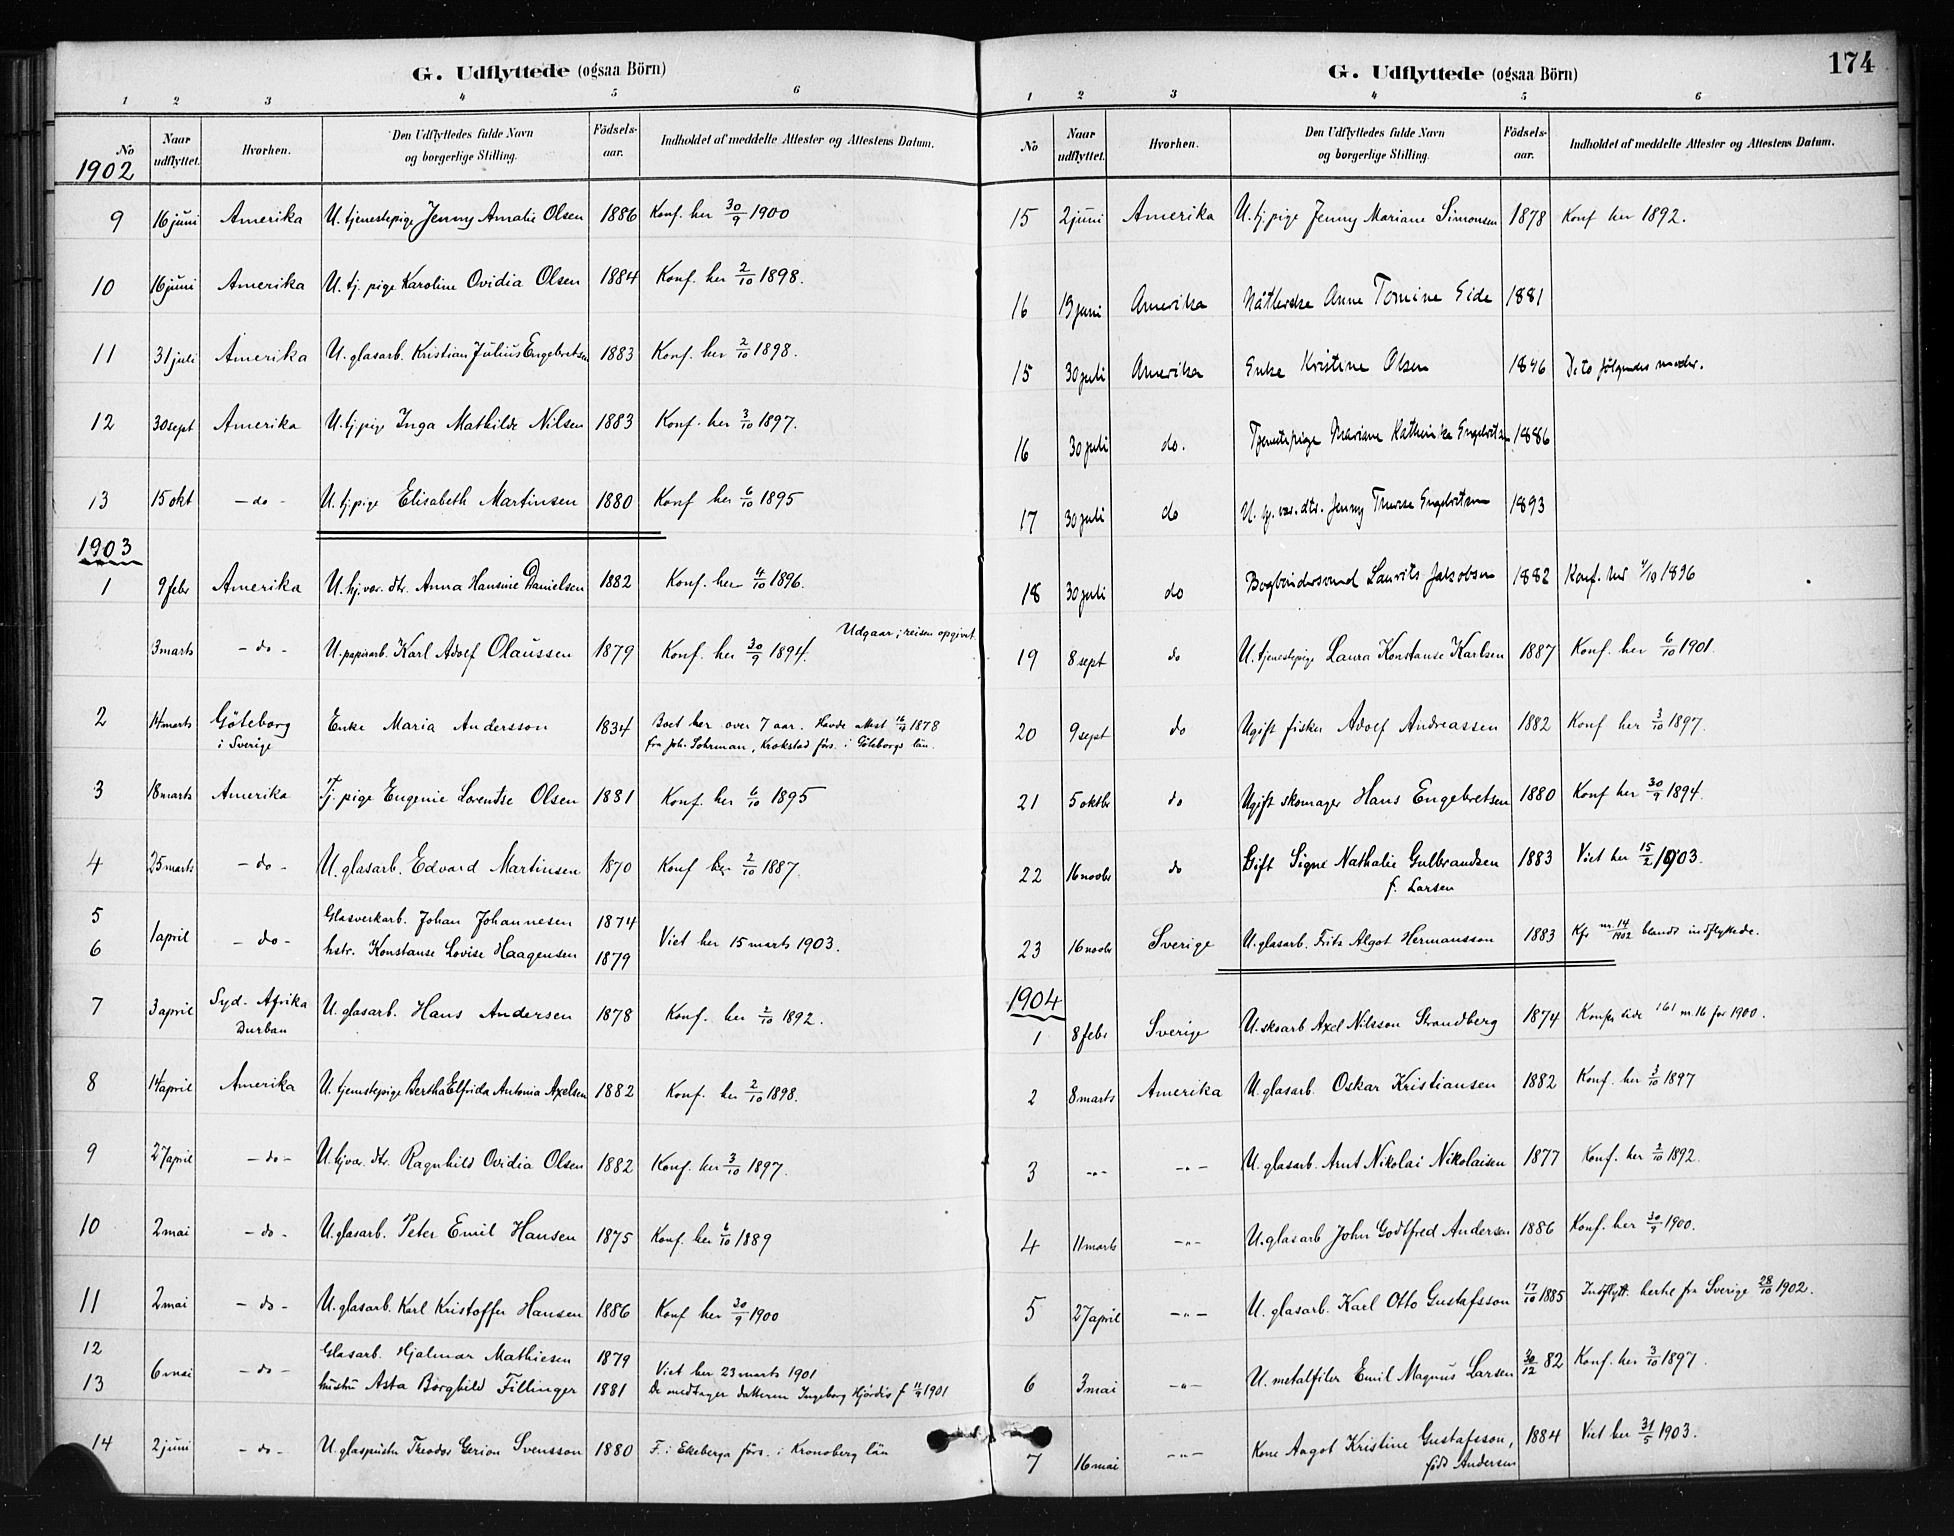 G. Udflyttede (ogsaa Börn)
1 2 3 4 5 6
No Naar udflyttet. Hvorhen. Den Udflyttedes fulde Navn og borgerlige Stilling. Födsels-aar. Indholdet af meddelte Attester og Attestens Datum.
1902
9 16 juni Amerika U. tjenestepige Jenny Amalie Olsen 1886 Konf. her 30/9 1900
10 16 juni Amerika U. tj. pige Karoline Ovidia Olsen 1884 Konf. her 2/10 1898.
11 31 juli Amerika U. glasarb. Kristian Julius Engebretsen 1883 Konf. her 2/10 1898.
12 30 sept Amerika U. tj. pige Inga Mathilde Nilsen 1883 Konf. her 3/10 1897.
13 15 okt - do - U. tj. pige Elisabeth Martinsen 1880 Konf her 6/10 1895
1903
1 9 febr Amerika U. hj. var. dtr. Anna Hansine Danielsen 1882 Konf. her 4/10 1896.
Udgaar; reisen opgivet.
3 marts - do - U. papirarb. Karl Adolf Olaussen 1879 Konf. her 30/9 1894.
2 14 marts Göteborg Enke Maria Andersson 1834 Boet her over 7 aar. Havde attest 16/4 1878
i Sverige fra Joh. Lohrman, Krokstad förs. i Göteborgs län.
3 18 marts Amerika Tj. pige Eugenie Lorentse Olsen 1881 Konf. her 6/10 1895
4 25 marts - do - U. glasarb. Edvard Martinsen 1870 Konf her 2/10 1887.
5 Glasverkarb. Johan Johannesen 1874
1 april - do - Viet her 15 marts 1903.
6 hstr. Konstanse Lovise Haagensen 1879
7 3 april Syd-Afrika U. glasarb. Hans Andersen 1878 Konf. her 2/10 1892.
Durban
8 14 april Amerika U. tjenestepige Bertha Elfrida Antonia Axelsen 1882 Konf. her 2/10 1898.
9 27 april - do - U. hjvar. dtr. Ragnhild Ovidia Olsen 1882 Konf. her 3/10 1897.
10 2 mai - do - U. glasarb. Peter Emil Hansen 1875 Konf. her 6/10 1889
11 2 mai - do - U. glasarb. Karl Kristoffer Hansen 1886 Konf her 30/9 1900
12 Glasarb. Hjalmar Mathiesen 1879 Viet her 23 marts 1901
6 mai - do -
13 hustru Asta Borghild Fillinger 1881 De medtager datteren Ingeborg Hjördis f 11/9 1901
14 2 juni - do - U. glaspuster Theodor Gerion Svensson 1880 F. i Ekeberga förs. i Kronoberg län
G. Udflyttede (ogsaa Börn) 174
1 2 3 4 5 6
No Naar udflyttet. Hvorhen. Den Udflyttedes fulde Navn og borgerlige Stilling. Födsels-aar. Indholdet af meddelte Attester og Attestens Datum.
15 2 juni Amerika U. tj. pige Jenny Mariane Simonsen 1878 Konf her 1892.
16 19 juni Amerika Anne Tomine Eide 1881
15 30 juli Amerika Enke Kristine Olsen 1846 De to fölgendes moder.
16 30 juli do. Tjenestepige Mariane Kathinka Engebretsen 1886
17 30 juli do U. hj. var. dtr. Jenny Therese Engebretsen 1893
18 30 juli do Bogbindersvend Laurits Jakobsen 1882 Konf. her 4/10 1896
19 8 sept do U. tjenestepige Laura Konstanse Karlsen 1887 Konf. her 6/10 1901.
20 9 sept do Ugift fisker Adolf Andreassen 1882 Konf her 3/10 1897.
21 5 oktbr do Ugift skomager Hans Engebretsen 1880 Konf her 30/9 1894.
22 16 novbr do Gift Signe Nathalie Gulbrandsen 1883 Viet her 15/2 1903.
f. Larsen
23 16 novbr Sverige U. glasarb. Frits Algot Hermansson 1883 Kfr nr. 14/1902 blandt indflyttede.
1904
1 8 febr Sverige U. skoarb Axel Nilsson Strandberg 1874 Konfer side 161 nr. 16 for 1900.
2 8 marts Amerika U. glasarb. Oskar Kristiansen 1882 Konf. her 3/10 1897
3 -"- -"- U. glasarb. Arnt Nikolai Nikolaisen 1877 Konf. her 2/10 1892.
4 11 marts -"- U. glasarb John Godtfred Andersen 1886 Konf. her 30/9 1900.
5 27 april -"- U. glasarb. Karl Otto Gustafsson 17/10 1885 Indflytt. hertil fra Sverige 28/10 1902.
6 3 mai -"- U. metalfiler Emil Magnus Larsen 30/12 82 Konf. her 3/10 1897.
7 16 mai -"- Kone Aagot Kristine Gustafsson, 1884 Viet her 31/5 1903.
född Andersen